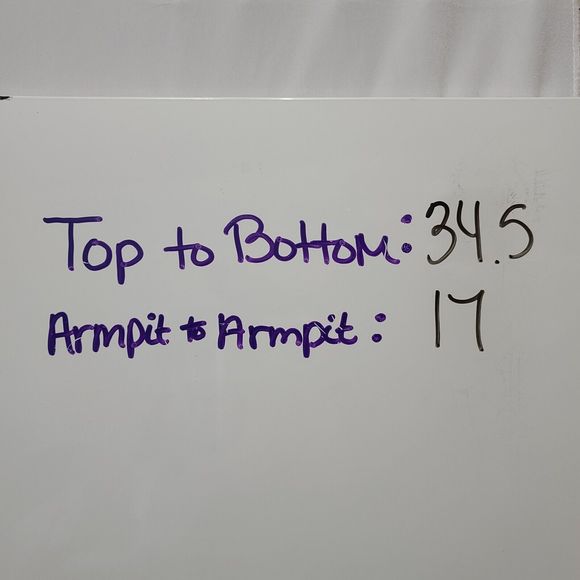 Top to Bottom: 34.5
Armpit to Armpit: 17